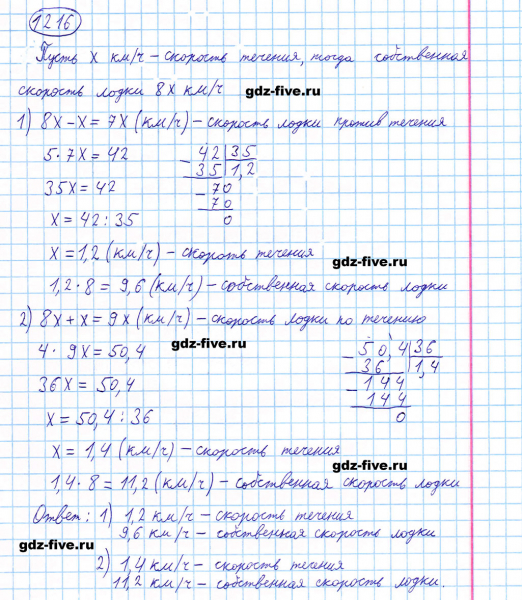 1216
Пусть x км/ч – скорость течения, тогда собственная
скорость лодки 8x км/ч
gdz-five.ru
1) 8x – x = 7x (км/ч) – скорость лодки против течения
5 · 7x = 42
35x = 42
x = 42 : 35
– 42 | 35
35 | 1,2
– 70
70
0
x = 1,2 (км/ч) – скорость течения
gdz-five.ru
1,2 · 8 = 9,6 (км/ч) – собственная скорость лодки
2) 8x + x = 9x (км/ч) – скорость лодки по течению
gdz-five.ru
4 · 9x = 50,4
36x = 50,4
x = 50,4 : 36
– 50,4 | 36
36 | 1,4
– 144
144
0
x = 1,4 (км/ч) – скорость течения
gdz-five.ru
1,4 · 8 = 11,2 (км/ч) – собственная скорость лодки
Ответ: 1) 1,2 км/ч – скорость течения
9,6 км/ч – собственная скорость лодки
gdz-five.ru
2) 1,4 км/ч – скорость течения
11,2 км/ч – собственная скорость лодки.